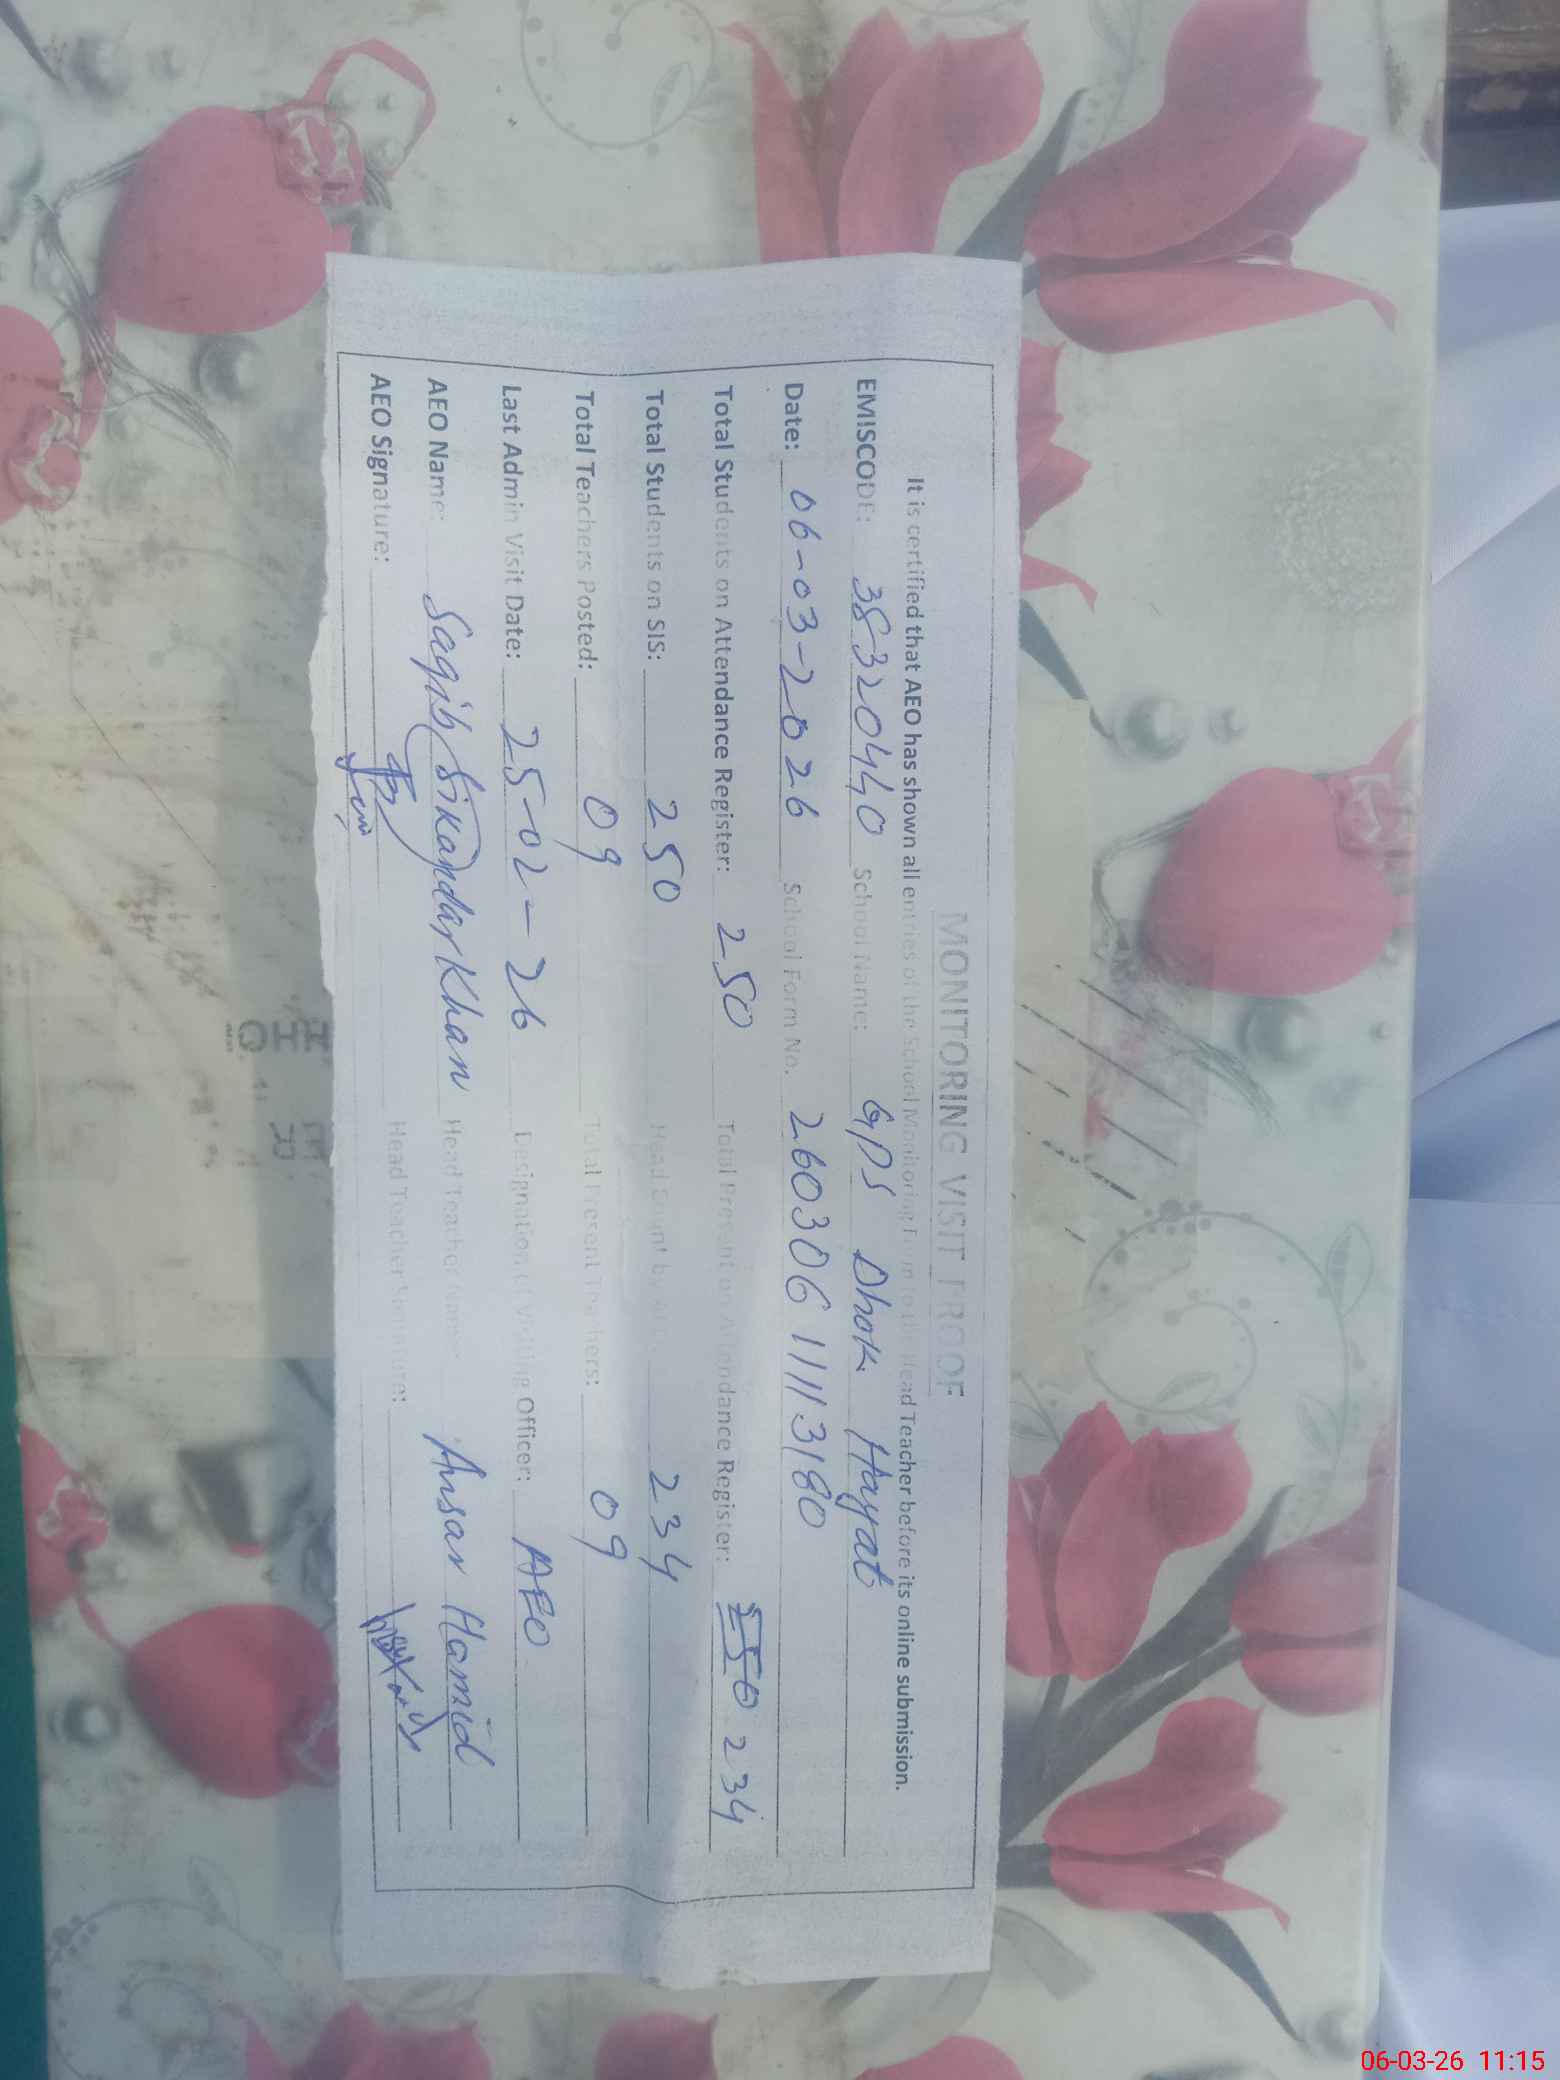 MONITORING VISIT PROOF
It is certified that AEO has shown all entries of the School Monitoring Form to the Head Teacher before its online submission.
EMISCODE: 38320440 School Name: GPS Dhok Hayat
Date: 06-03-2026 School Form No. 26030611113180
Total Students on Attendance Register: 250 Total Present on Attendance Register: 250 234
Total Students on SIS: 250 Head Count by AEO: 234
Total Teachers Posted: 09 Total Present Teachers: 09
Last Admin Visit Date: 25-02-26 Designation of Visiting Officer: AEO
AEO Name: Saqib Sikandar Khan Head Teacher Name: Ansar Hamid
AEO Signature: Head Teacher Signature:
06-03-26 11:15